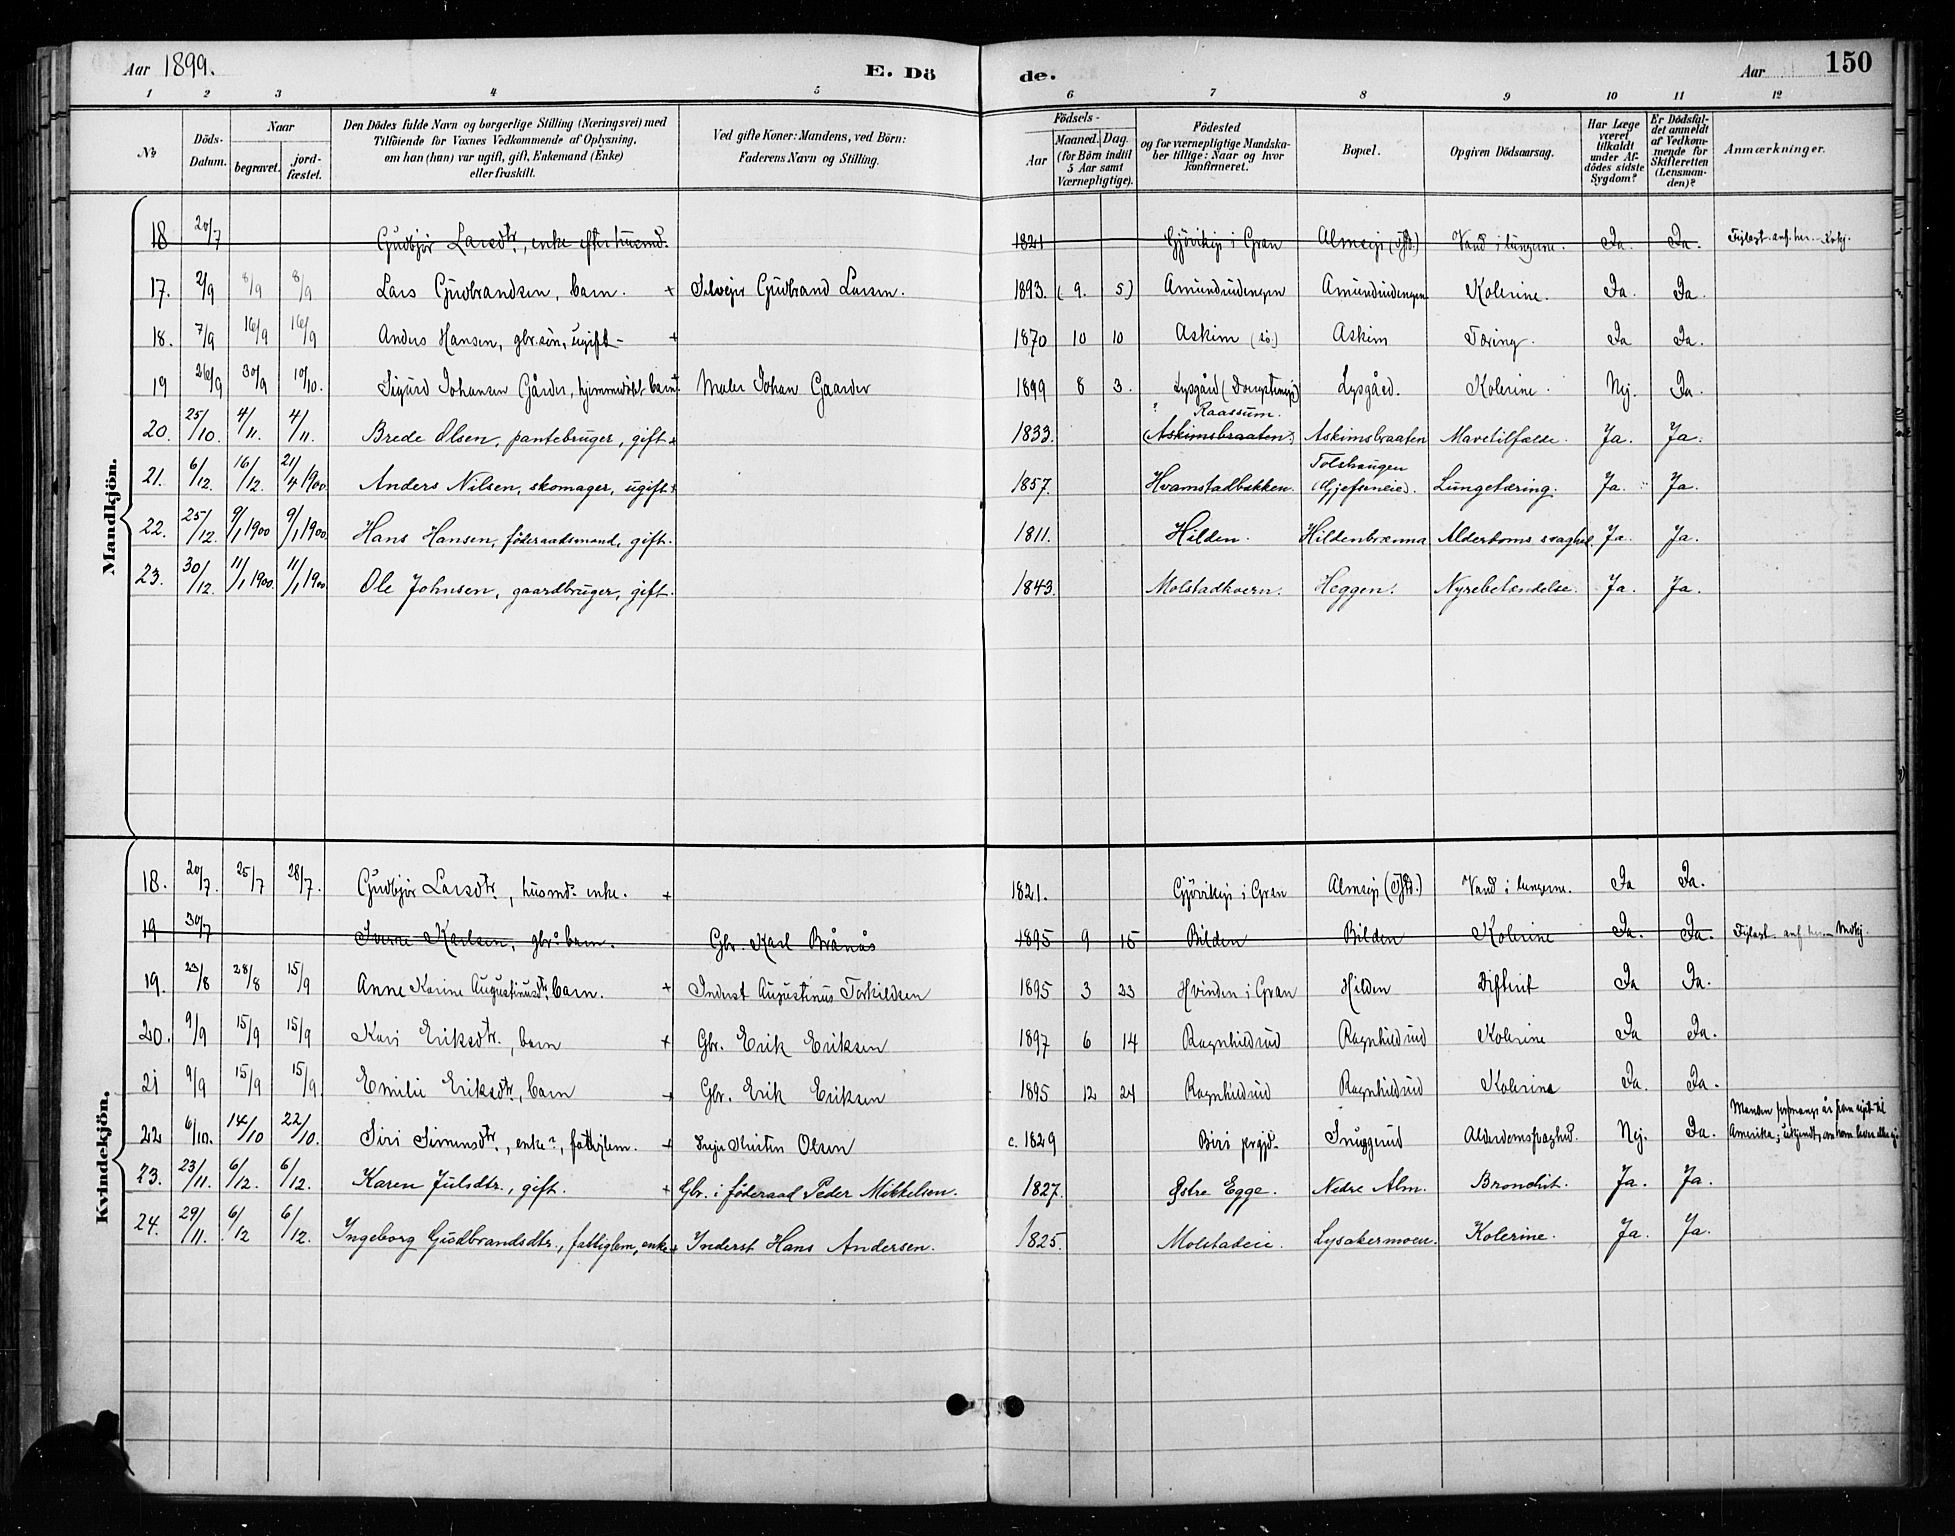 Aar 1899. E. Dö de. Aar 150
1 2 3 4 5 6 7 8 9 10 11 12
№ Döds-Datum. Naar begravet. jord-fæstet. Den Dödes fulde Navn og borgerlige Stilling (Næringsvei) med Tilföiende for Voxnes Vedkommende af Oplysning, om han (hun) var ugift, gift, Enkemand (Enke) eller fraskilt. Ved gifte Koner: Mandens, ved Börn: Faderens Navn og Stilling. Födsels- Aar Maaned. Dag. (for Börn indtil 5 Aar samt Værnepligtige). Födested og for værnepligtige Mandskaber tillige: Naar og hvor konfirmeret. Bopæl. Opgiven Dödsaarsag. Har Læge været tilkaldt under Afdödes sidste Sygdom? Er Dödsfaldet anmeldt af Vedkommende for Skifteretten (Lensmanden)? Anmærkninger.
Mandkjön.
18 20/7 Gudbjør Larsdtr, enke efter husmd. 1821 Gjövikeje i Gran Almseje Vand i lungerne. Ja. Ja.
17. 2/9 8/9 8/9 Lars Gudbrandsen, barn. + Selvejer Gudbrand Larsen. 1893. (9. 5) Amundrudengen Amundrudengen Kolerine. Ja. Ja.
18. 7/9 16/9 16/9 Anders Hansen, gbr.søn, ugift - + 1870 10 10 Askim (sø.) Askim Tæring. Ja Ja.
19 26/9 30/9 10/10. Sigurd Johansen Gårder, hjemmedøbt barn + Maler Johan Gaarder 1899 8 3. Lysgård Lysgård. Kolerine. Nej. Ja.
20. 25/10. 4/11. 4/11. Brede Olsen, pantebruger, gift + 1833. Raassum. (Askimsbraaten) Askimsbraaten Mavetilfælde. Ja. Ja.
21. 6/12. 16/12. 21/4 1900. Anders Nilsen, skomager, ugift + 1857. Hvamstadbakken. Tolshaugen (Gjefseneie). Lungetæring. Ja. Ja.
22. 25/12. 9/1 1900 9/1 1900. Hans Hansen, föderaadsmand, gift. 1811. Hilden. Hildenbrænna Alderdoms svaghed. Ja. Ja.
23. 30/12. 11/1 1900. 11/1 1900 Ole Johnsen, gaardbruger, gift. 1843. Molstadkvern. Heggen. Nyrebetændelse. Ja. Ja.
Kvindekjön.
18. 20/7. 25/7 28/7. Gudbjør Larsdtr, husmds enke. + 1821. Gjövikeje i Gran Almseje Vand i lungerne. Ja Ja.
19 30/7 Sverre Karlsen, gbrs barn. Gbr. Karl Brånås 1895 9 15 Bilden Bilden Kolerine Ja. Ja.
19. 23/8 28/8 15/9 Anne Karine Augustinusdtr, barn. + Inderst Augustinus Torkildsen 1895 3 23 Hvinden i Gran Hilden Difterit Ja Ja.
20. 9/9 15/9 15/9 Kari Eriksdtr, barn + Gbr. Erik Eriksen 1897 6 14 Ragnhildrud Ragnhildrud Kolerine Ja Ja.
21 9/9 15/9 15/9. Emilie Eriksdtr, barn + Gbr. Erik Eriksen 1895 12 24 Ragnhildrud Ragnhildrud Kolerine Ja. Ja.
22 6/10. 14/10 22/10. Siri Simensdtr, enke?, fattiglem. + Kristen Olsen c. 1829 Biri prgjd. Snuggerud Alderdomssvaghed. Nej. Ja. Manden for mange år siden rejst til Amerika; ukjendt, om han lever eller ej.
23. 23/11. 6/12. 6/12. Karen Julsdtr., gift. + Gbr. i föderaad Peder Mikkelsen. 1827. Østre Egge. Nedre Alm. Bronchit. Ja. Ja.
24. 29/11. 6/12 6/12. Ingeborg Gudbrandsdtr., fattiglem, enke + Inderst Hans Andersen. 1825. Molstadeie. Lysakermoen. Kolerine. Ja. Ja.